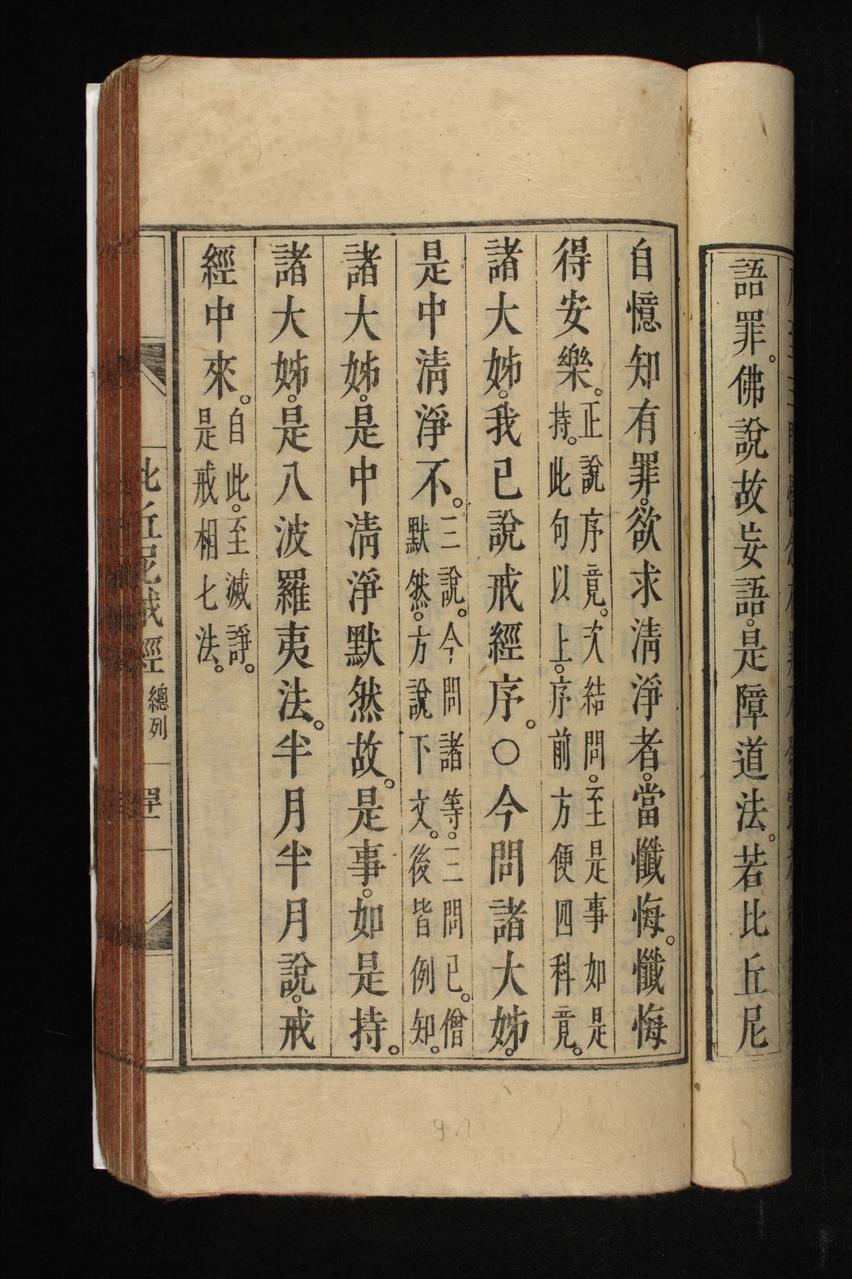 語罪。佛說故妄語。是障道法。若比丘尼
自憶知有罪。欲求清淨者。當懺悔。懺悔
得安樂。正說序竟。次結問。至是事如是
持。此句以上。序前方便四科竟。
諸大姊。我已說戒經序。○今問諸大姊。
是中清淨不。三說。今問諸等。三問已。僧
默然。方說下文。後皆例知。
諸大姊。是中清淨默然故。是事。如是持。
諸大姊。是八波羅夷法。半月半月說。戒
經中來。自此。至滅諍。
是戒相七法。
比丘尼戒經 總列